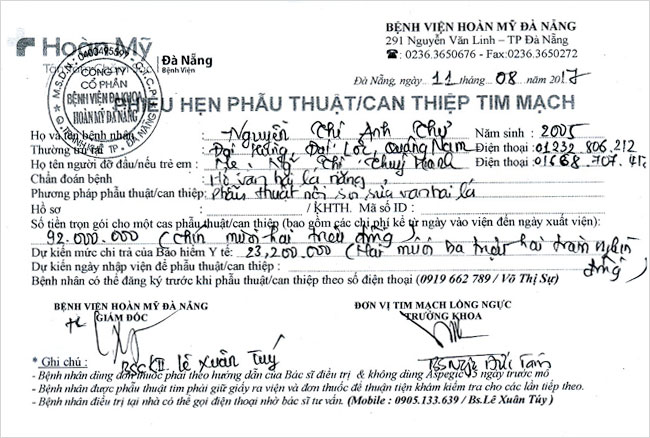 Hoàn Mỹ
Đà Nẵng
Bệnh Viện
BỆNH VIỆN HOÀN MỸ ĐÀ NẴNG
291 Nguyễn Văn Linh – TP Đà Nẵng
☎: 0236.3650676 - Fax:0236.3650272
M.S.D.N: 0400495509 - C.T.C.P
CÔNG TY
CỔ PHẦN
BỆNH VIỆN ĐA KHOA
HOÀN MỸ ĐÀ NẴNG
TP - ĐÀ NẴNG
Đà Nẵng, ngày 11 tháng 08 năm 2017
PHIẾU HẸN PHẪU THUẬT/CAN THIỆP TIM MẠCH
Họ và tên bệnh nhân : Nguyễn Thị Anh Thư Năm sinh : 2005
Thường trú tại : Đại Hồng, Đại Lộc, Quảng Nam Điện thoại : 01232 806.212
Họ tên người đỡ đầu/nếu trẻ em : Mẹ : Ng Thị Thuý Hạnh Điện thoại : 01668.707.
Chẩn đoán bệnh : Hở van hai lá nặng
Phương pháp phẫu thuật/can thiệp: Phẫu thuật nội soi sửa van hai lá
Hồ sơ : / KHTH. Mã số ID :
Số tiền trọn gói cho một cas phẫu thuật/can thiệp (bao gồm các chi phí kể từ ngày vào viện đến ngày xuất viện):
92.000.000 (Chín mươi hai triệu đồng)
Dự kiến mức chi trả của Bảo hiểm Y tế: 23,200.000 (Hai mươi ba triệu hai trăm nghìn
đồng)
Dự kiến ngày nhập viện để phẫu thuật/can thiệp :
Bệnh nhân có thể đăng ký trước khi phẫu thuật/can thiệp theo số điện thoại (0919 662 789 / Võ Thị Sự)
BỆNH VIỆN HOÀN MỸ ĐÀ NẴNG ĐƠN VỊ TIM MẠCH LỒNG NGỰC
GIÁM ĐỐC TRƯỞNG KHOA
BSCKII. Lê Xuân Tuý Đức Tâm
* Ghi chú :
- Bệnh nhân dùng đơn thuốc phải theo hướng dẫn của Bác sĩ điều trị & không dùng Aspegic 5 ngày trước mổ
- Bệnh nhân được phẫu thuật tim phải giữ giấy ra viện và đơn thuốc để thuận tiện khám kiểm tra cho các lần tiếp theo.
- Bệnh nhân điều trị tại nhà có thể gọi điện thoại nhờ bác sĩ tư vấn. (Mobile : 0905.133.639 / Bs.Lê Xuân Túy )